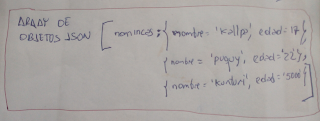 ARRAY DE
OBJETOS JSON [nominces: { nombre = 'Kallpa', edad = 17 }
{ nombre = 'puquy', edad = '22' },
{ nombre = 'Kuntuni', edad = '5000' }]